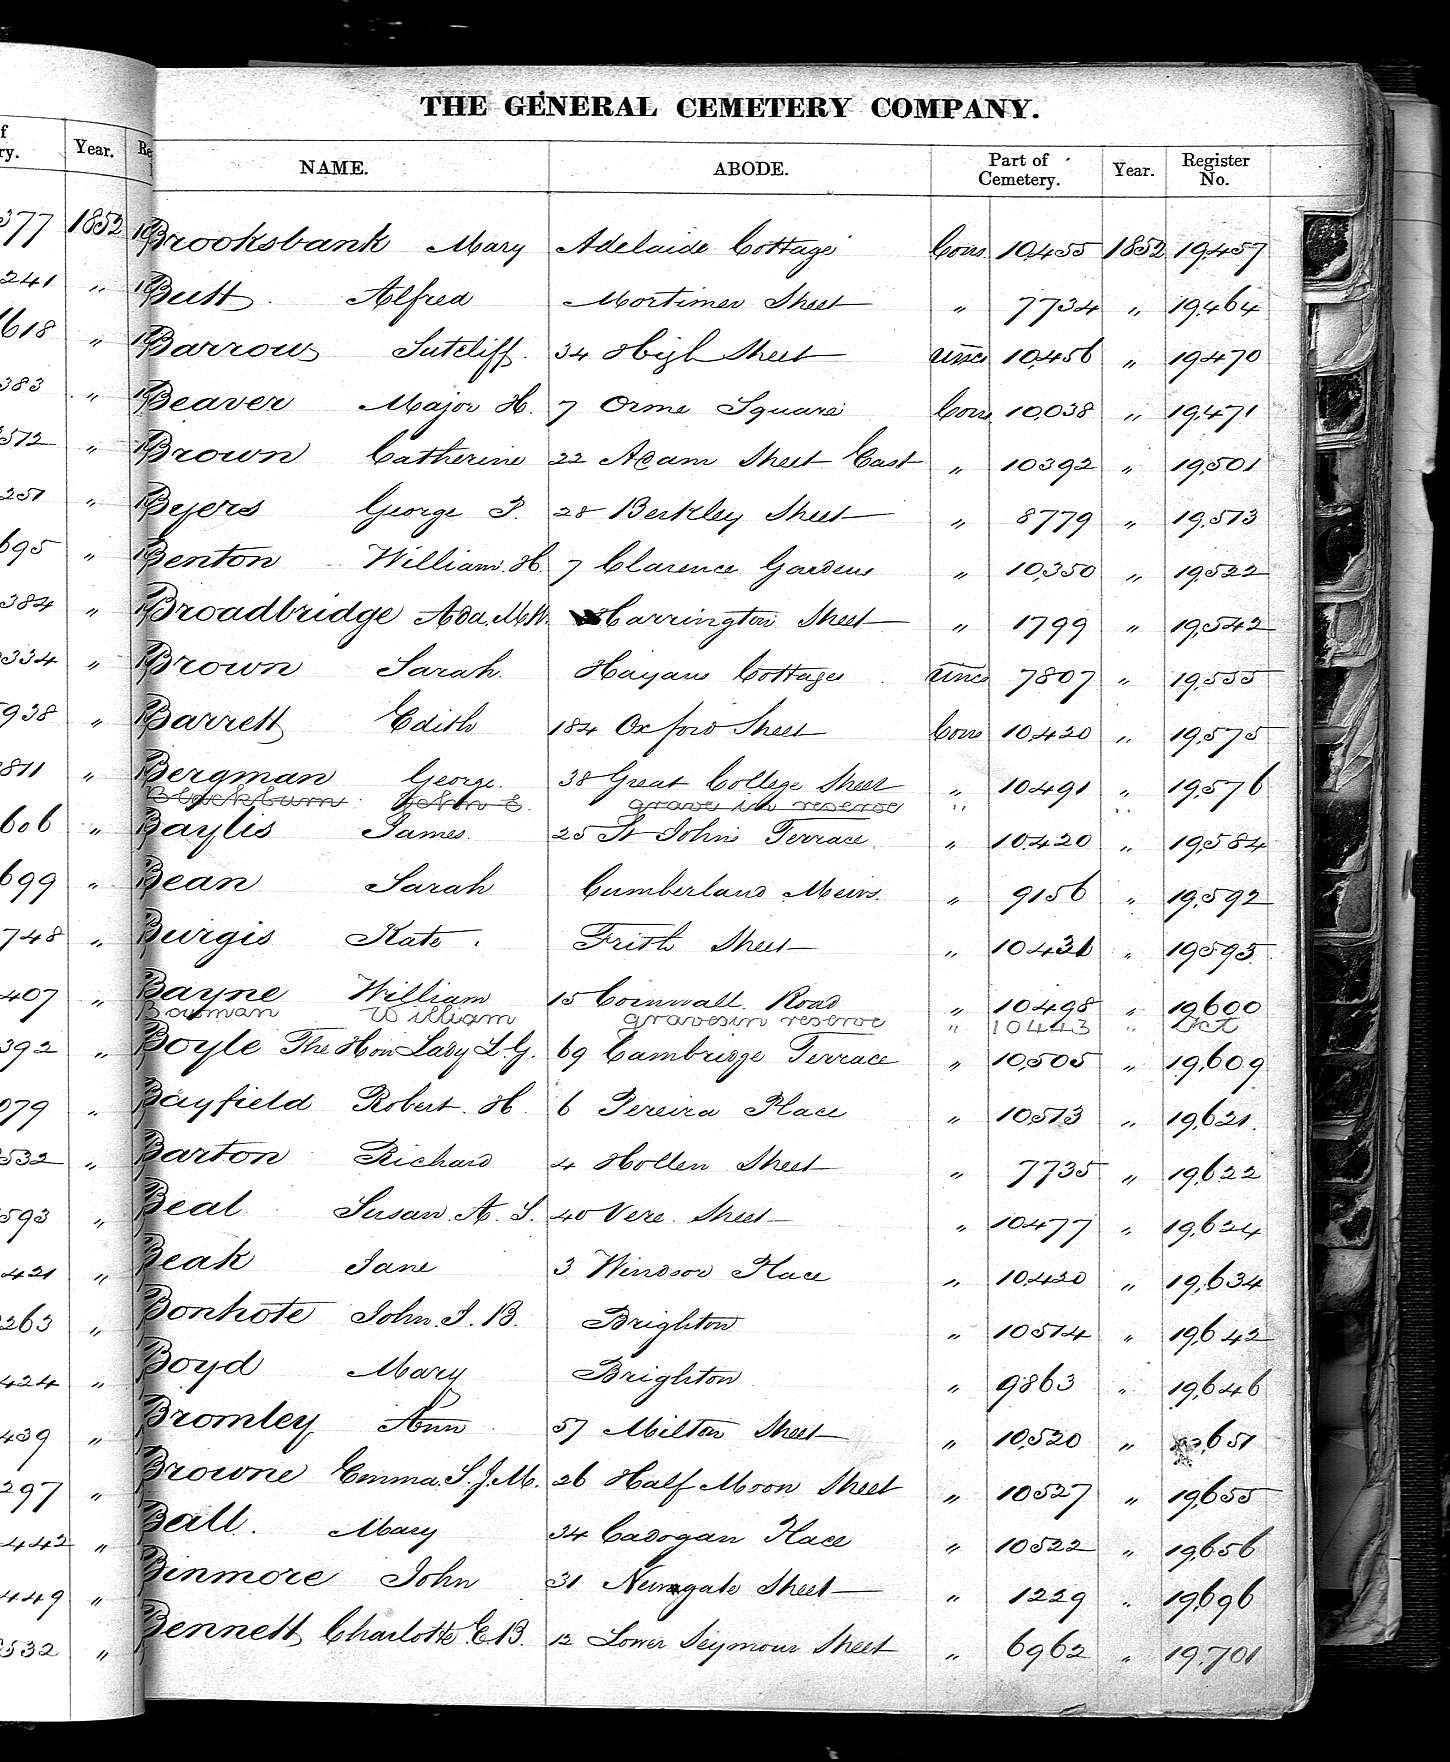 THE GENERAL CEMETERY COMPANY.
Year. NAME. ABODE. Part of Cemetery. Year. Register No.
377 1852 Brooksbank Mary Adelaide Cottage Cons 10,455 1852 19,457
241 " Butt Alfred Mortimer Street " 7734 " 19,464
618 " Barrow Sutcliff. 34 High Street Uncs 10,456 " 19,470
383 " Beaver Major H. 7 Orme Square Cons 10,038 " 19,471
572 " Brown Catherine 22 Adam Street East " 10392 " 19,501
251 " Byers George 28 Berkley Street " 8779 " 19,513
695 " Benton William. H. 7 Clarence Gardens " 10,350 " 19,522
384 " Broadbridge Ada. M. Harrington Street " 1799 " 19,542
334 " Brown Sarah. Cottages Uncs 7807 " 19,555
938 " Barrett Edith 184 Oxford Street Cons 10,420 " 19,575
811 " Bergman George 38 Great College Street " 10491 " 19,576
Blackburn John E. grave in reserve " "
606 " Baylis James. 25 St Johns Terrace " 10,420 " 19,584
699 " Bean Sarah Cumberland Mews. " 9156 " 19,592
748 " Burgis Kate. Frith Street " 10431 " 19593
407 " Bayne William 15 Cornwall Road " 10498 " 19,600
Bowman William graves in reserve " 10443 "
392 " Boyle The Hon Lady L. G. 69 Cambridge Terrace " 10,505 " 19,609
079 " Bayfield Robert. H. 6 Pereira Place " 10,513 " 19,621.
532 " Barton Richard 4 Hollen Street " 7735 " 19,622
593 " Beal Susan. A. S. 40 Vere Street " 10477 " 19,624
421 " Beak Jane 3 Windsor Place " 10,420 " 19,634
263 " Bonhote John. J. B. Brighton " 10514 " 19,642
424 " Boyd Mary Brighton " 9863 " 19,646
439 " Bromley Ann 57 Milton Street " 10,520 " ,651
297 " Browne Emma. S. J. M. 26 Half Moon Street " 10527 " 19,655
442 " Ball. Mary 34 Cadogan Place " 10522 " 19,656
449 " Binmore John 31 Newgate Street " 1229 " 19,696
532 " Bennett Charlotte E B. 12 Lower Seymour Street " 6962 " 19,701